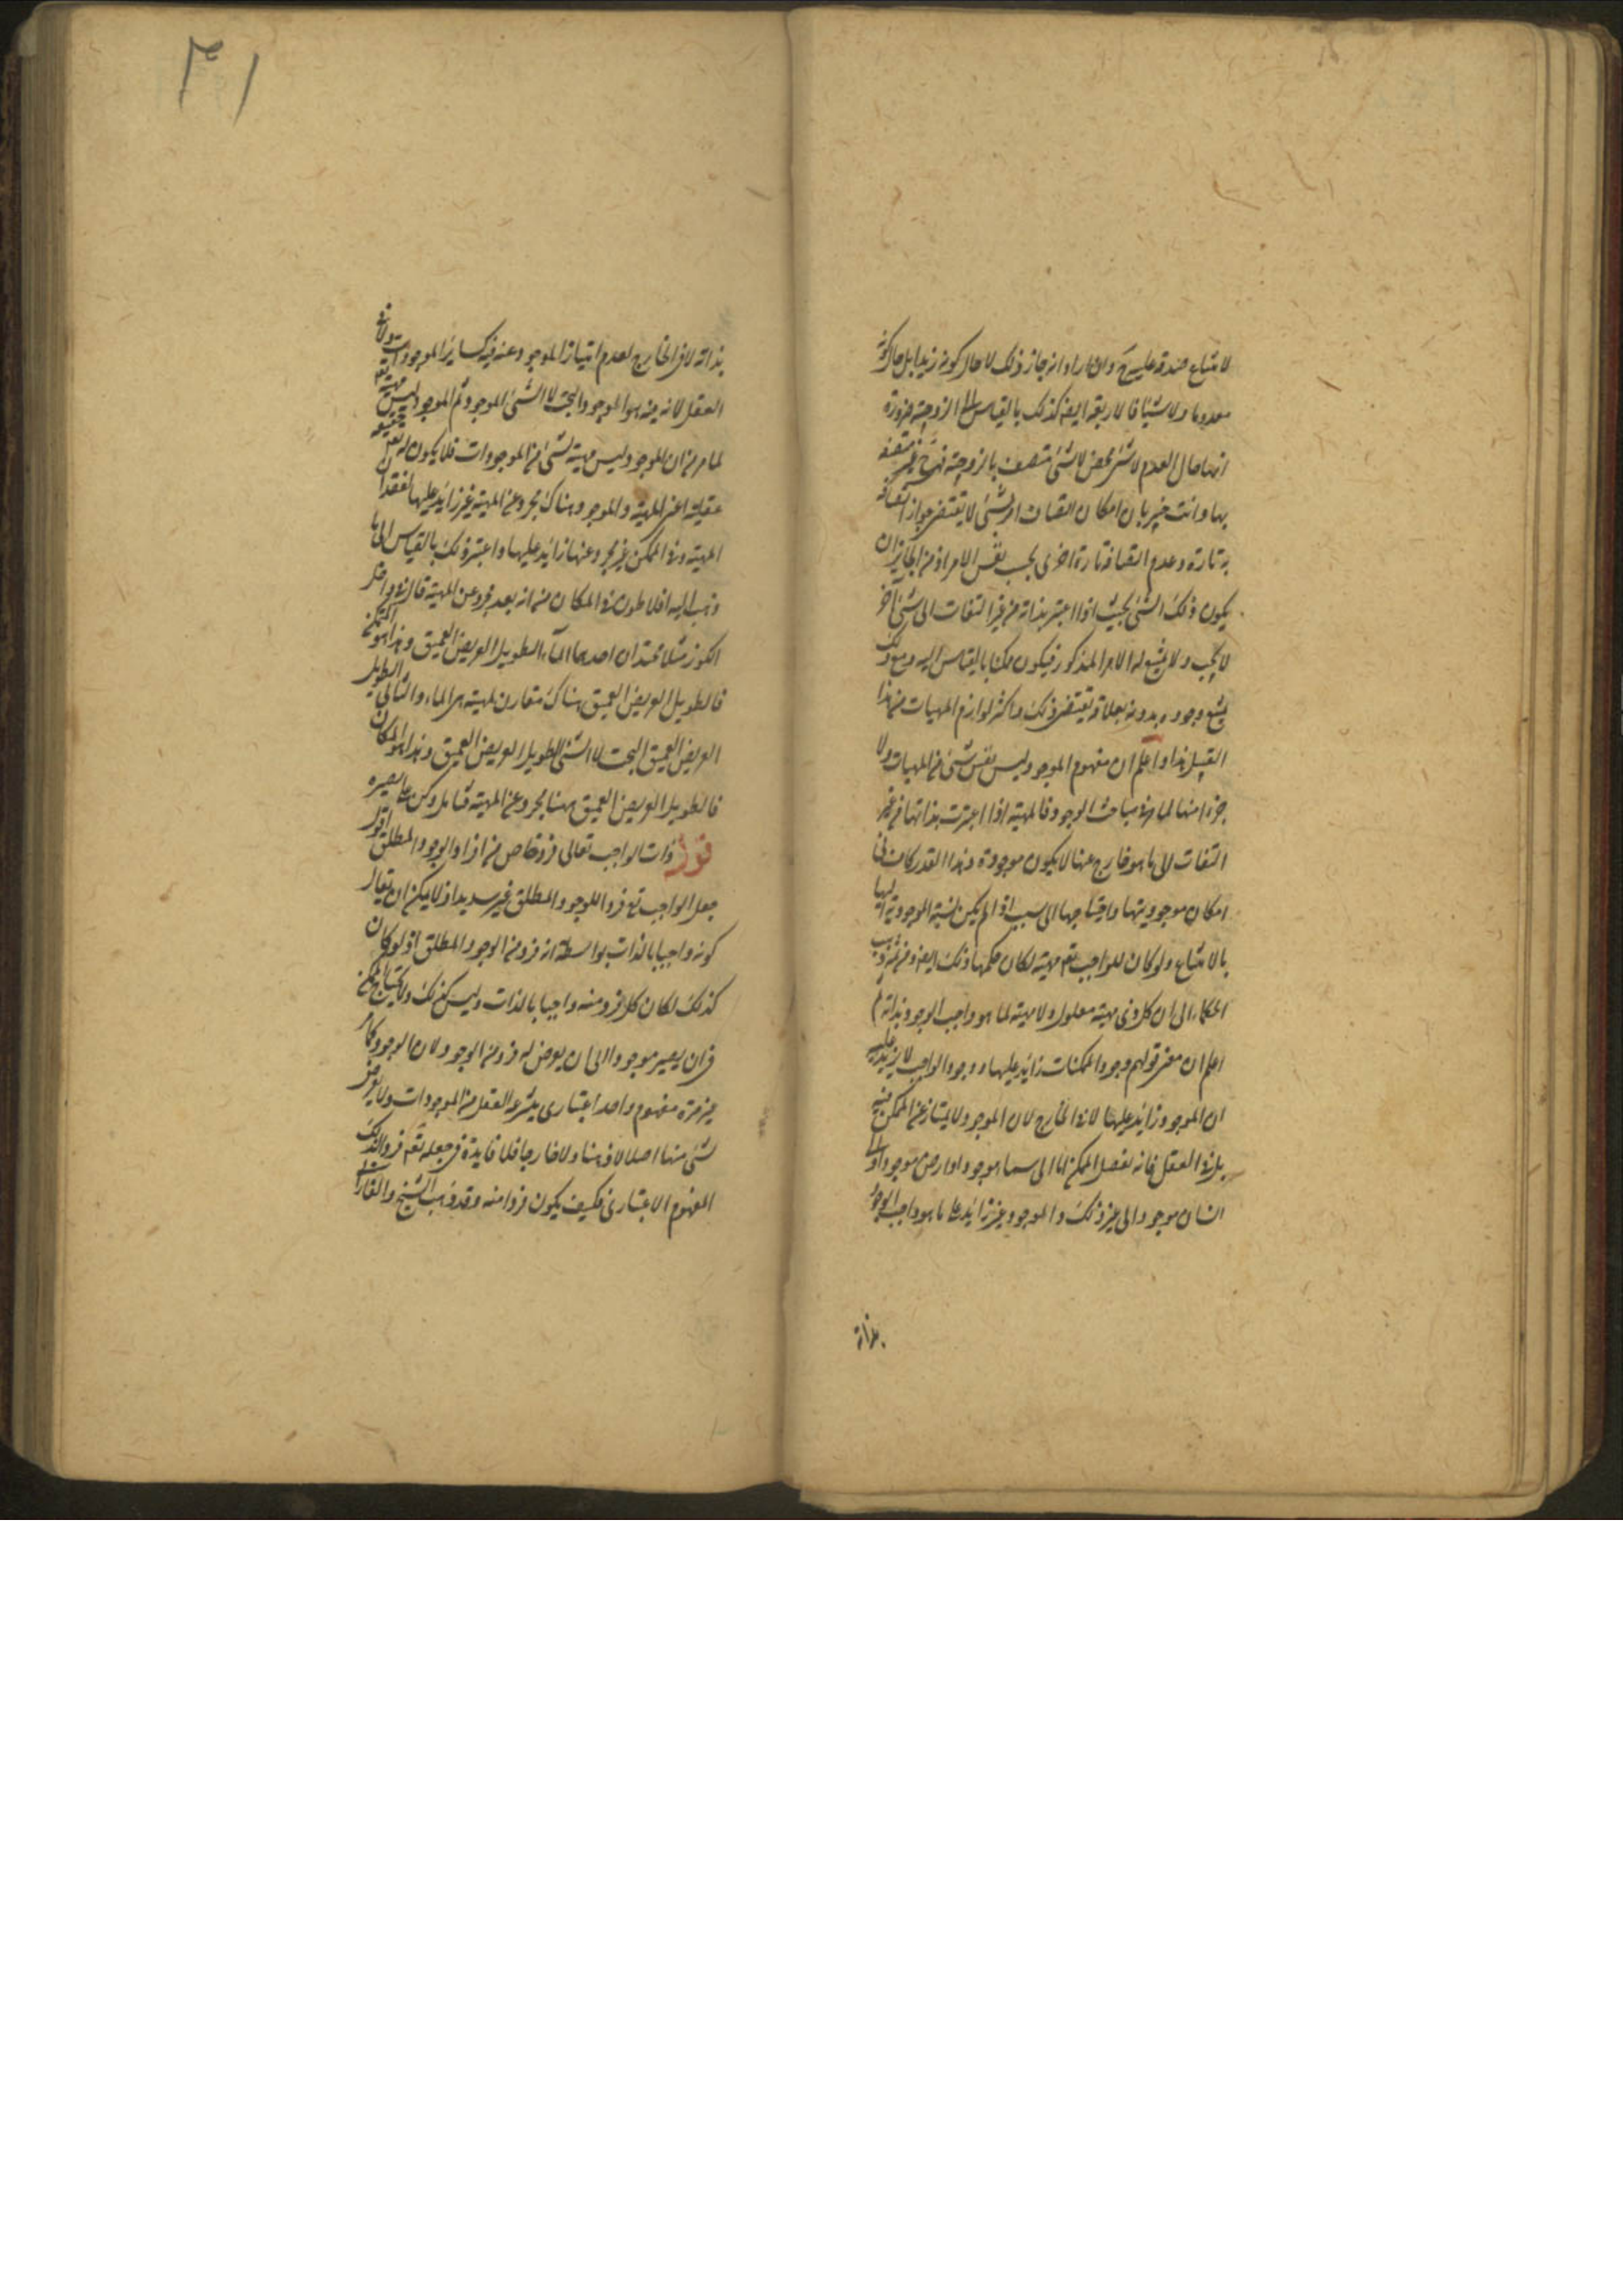 لامتناع صدقه عليه ح وان اراد انه جاز ذلك لا حال كونه زيدا بل حال كونه
معدوما ولا شيئا فالاربعة ايضا كذلك بالقياس الى الزوجية ضرورة
انها حال العدم لاشئ محض لا شئ متصف بالزوجية فهي ح غير متصفة
بها وانت خبير بان امكان اتصاف امر بشئ لا يقتضي جواز اتصافه
به تارة وعدم اتصافه تارة اخرى بحسب نفس الامر اذ من الجايز ان
يكون ذلك الشئ بحيث اذا اعتبر بذاته من غير التفات الى شئ آخر
لا يجب ولا يمتنع له الامر المذكور فيكون ممكنا بالقياس اليه ومع ذلك
يمتنع وجوده بدونه لعلاقة تقتضي ذلك واكثر لوازم المهيات من هذا
القبيل هذا واعلم ان مفهوم الموجود ليس نفس شئ من المهيات ولا
جزءا منها لما في مباحث الوجود فالمهية اذا اعتبرت بذاتها من غير
التفات الى ما هو خارج عنها لا يكون موجودة وهذا القدر كاف في
امكان موجوديتها واحتياجها الى سبب اذا لم يكن نسبة الموجودية اليها
بالامتناع ولو كان للواجب تعم مهية لكان حكمها ذلك ايضا ومن ثم ذهب
الحكماء الى ان كل ذي مهية معلول ولا مهية لما هو واجب الوجود بذاته
اعلم ان معنى قولهم وجود الممكنات زايد عليها ووجود الواجب لا يزيد عليه
ان الموجود زايد عليها لا في الخارج لان الموجود لا يمتاز عن الممكن فيه
بل في العقل فانه يفصل الممكن اما الى سماء موجود او ارض موجود او الى
انسان موجود الى غير ذلك والموجود غير زايد على ما هو واجب الوجود
بذاته
٣١
بذاته لا في الخارج لعدم امتياز الموجود عنه فيه كساير الموجودات ولا في
العقل لانه فيه هو الموجود البحت لا الشئ الموجود ثم الموجود ليس مهية تعم
لما مر من ان الموجود ليس مهية لشئ من الموجودات فلا يكون له تعم مهية
عقلية اعني المهية والموجود هناك مجرد عن المهية غير زايد عليها لفقدان
المهية وفي الممكن غير مجرد عنها زايد عليها واعتبر ذلك بالقياس الى ما
ذهب اليه افلاطون في المكان من انه بعد مجرد عن المهية قال في داخل
الكوز مثلا ممتدان احدهما الماء الطويل العريض العميق وهذا هو المتمكن
فالطويل العريض العميق هناك مقارن لمهية هي الماء والثاني الطويل
العريض العميق البحت لا الشئ الطويل العريض العميق وهذا هو المكان
فالطويل العريض العميق ههنا مجرد عن المهية تامل وكن على بصيرة
نور ذات الواجب تعالى فرد خاص من افراد الوجود المطلق اقول
جعل الواجب تع فردا للوجود المطلق غير سديد اذ لا يمكن ان يقال
كونه واجبا بالذات بواسطة انه فرد من الوجود المطلق اذ لو كان
كذلك لكان كل فرد منه واجبا بالذات وليس كذلك ولا يحتاج الممكن
في ان يصير موجودا الى ان يعرض له فرد من الوجود ولان الوجود كما مر
غير مرة مفهوم واحد اعتباري ينتزعه العقل من الموجودات ولا يعرض
لشئ منها اصلا لا ذهنا ولا خارجا فلا فايدة في جعله تعم فردا لذلك
المفهوم الاعتباري فكيف يكون فردا منه وقد ذهب الشيخ والفارابي